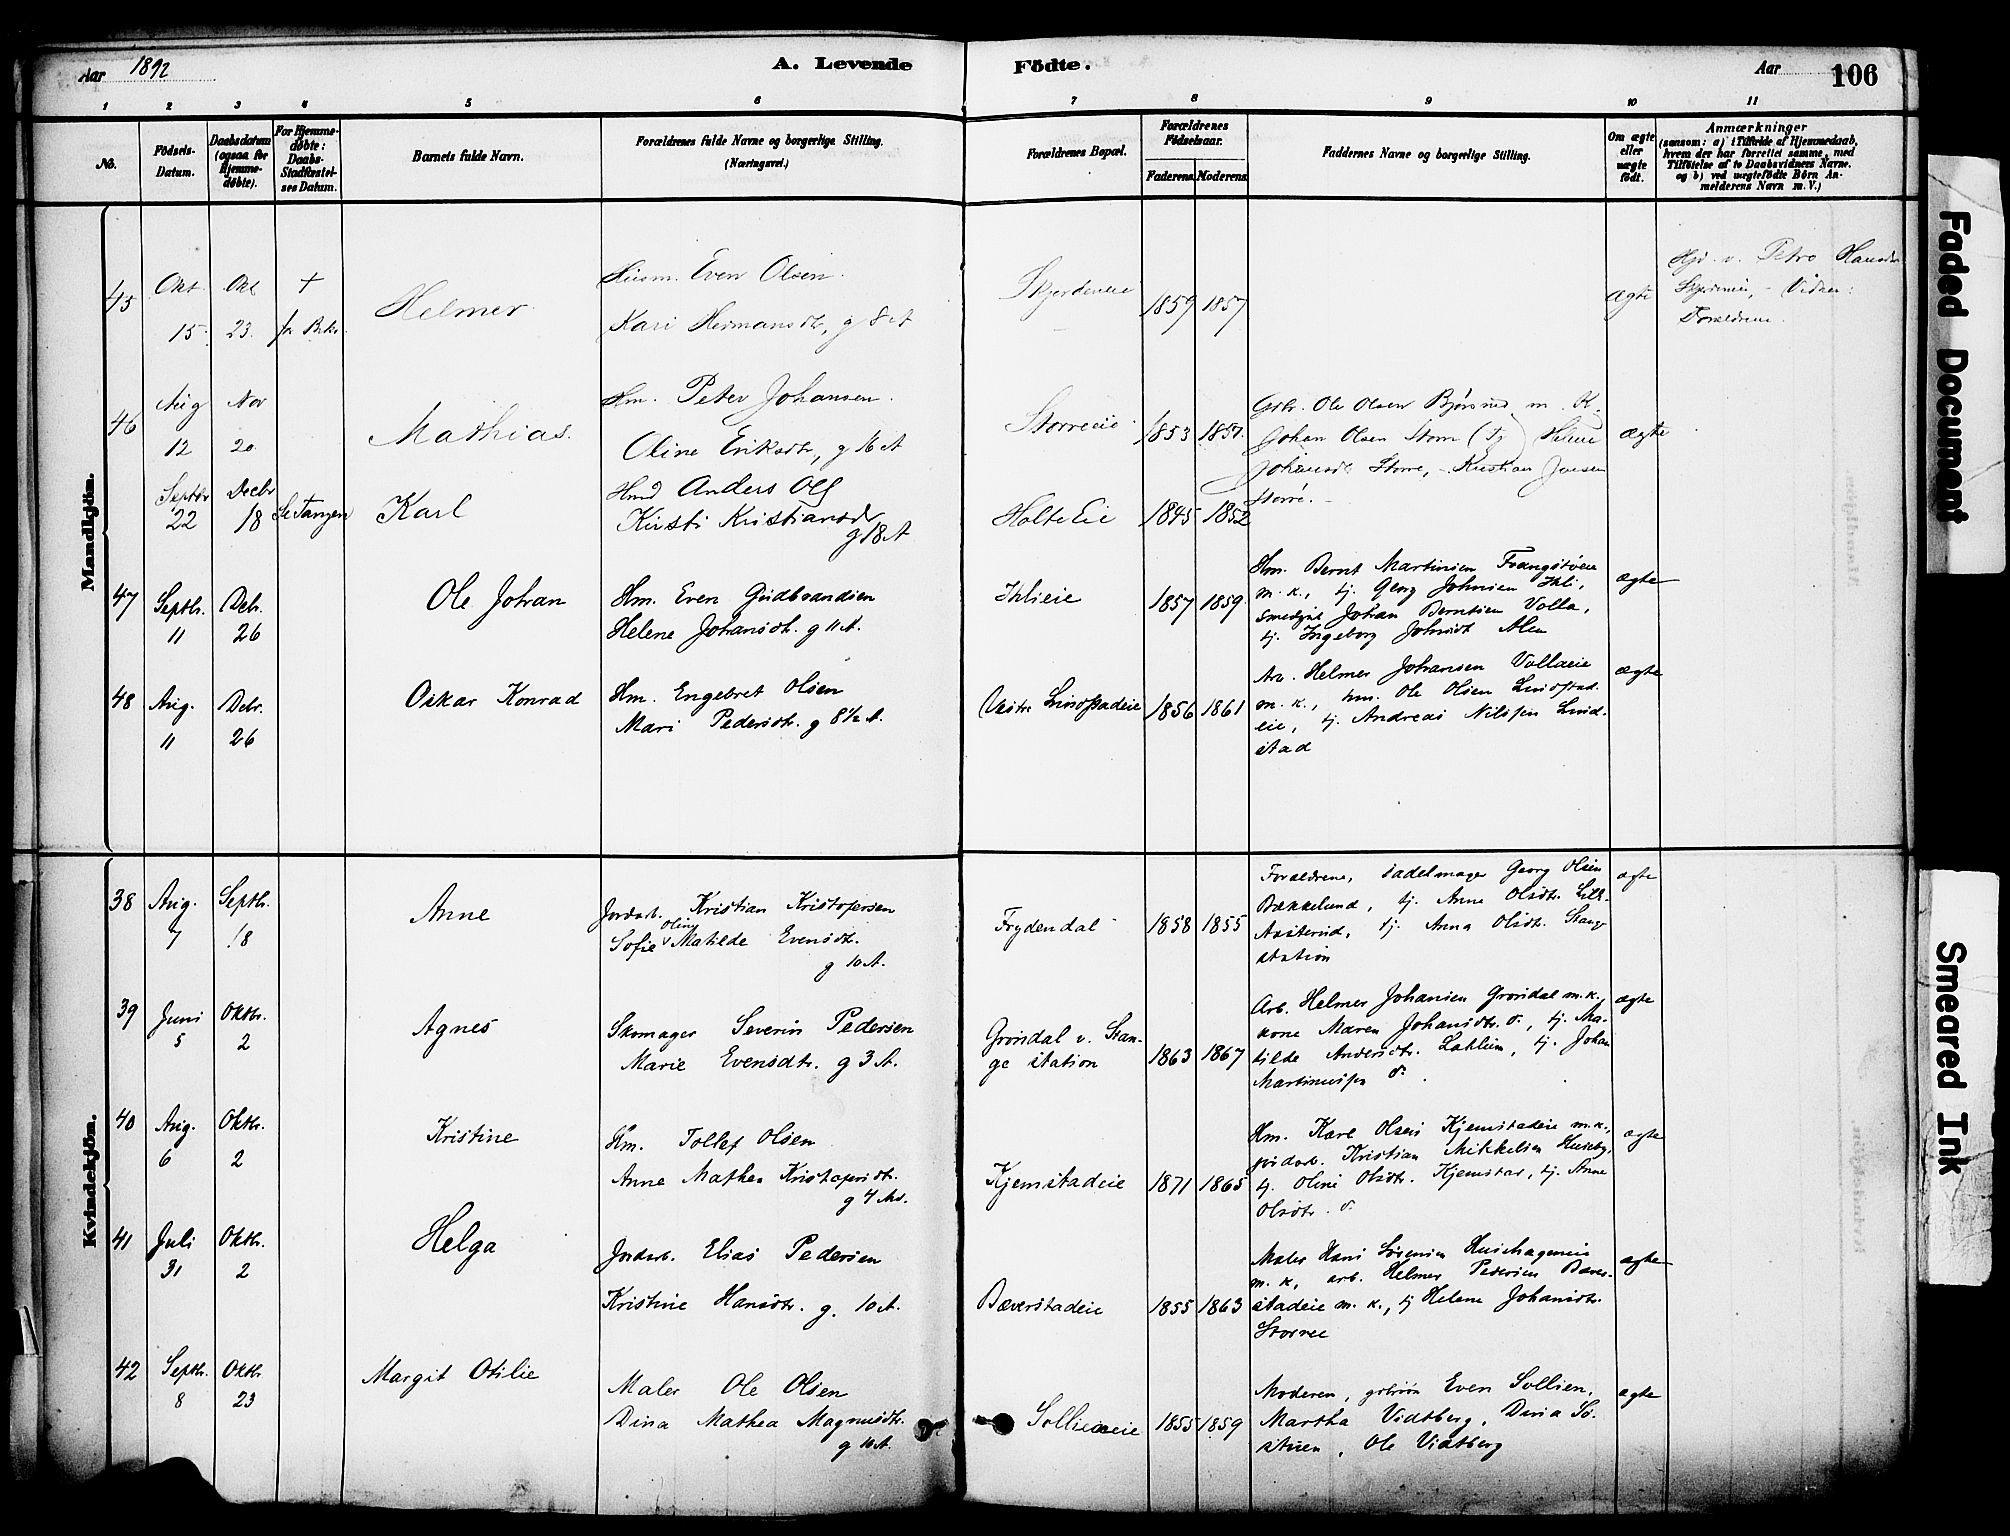 Aar 1892
A. Levende
Födte.
Aar
106
1 2 3 4 5 6 7 8 9 10 11
No.
Födsels-Datum.
Daabsdatum (ogsaa for Hjemmedöbte).
For Hjemmedöbte: Daabs-Stadfæstelses Datum.
Barnets fulde Navn.
Forældrenes fulde Navne og borgerlige Stilling. (Næringsvei.)
Forældrenes Bopæl.
Forældrenes Födselsaar.
Faderens. Moderens.
Faddernes Navne og borgerlige Stilling.
Om ægte eller uægte födt.
Anmærkninger
(saasom: a) i Tilfælde af Hjemmedaab, hvem der har forrettet samme, med Tilföielse af to Daabsvidners Navne. og b) ved uægtefödte Börn Anmelderens Navn m. V.)
Mandkjön.
45
Okt 15
Okt 23.
+
Helmer
Husm. Even Olsen.
Kari Hermansdtr, g 8 A
Skjerdeneie
1859 1857
ægte
Hjd. v. Petro
Skjerdeneie, - Vidner:
Forældrene.
46
Aug 12
Nov 20
Mathias.
Hm. Peter Johansen.
Oline Eriksdtr, g 16 A
Storreeie
1853 1857.
Ole Olsen m. K.
Johan Olsen Storre (tj)
Johansdt Storre, - Kristian Jonsen
Storre. -
ægte
Septbr 22
Decbr 18
Se Tangen
Karl
Hmd Anders Ols
Kirsti Kristiansdr
g 18 A
Holte Eie
1845 1852
47
Septbr. 11
Debr. 26
Ole Johan
Hm. Even Gudbrandsen
Helene Johansdtr. g 11 A.
Ihlieie
1857 1859.
Hm. Bernt Martinsen
m. k., tj. Georg Johnsen Ihli,
Johan Berntsen Volla,
tj. Ingeborg Johnsdt Alm
ægte
48
Aug. 11
Debr. 26
Oskar Konrad
Hm. Engebret Olsen
Mari Pedersdtr. g 8½ A.
Vestre Lindstadeie
1856 1861
Arb. Helmer Johansen Vollaeie
m. k., hm. Ole Olsen Lindstad-
eie, tj. Andreas Nilssen Lind-
stad
ægte
Kvindekjön.
38
Aug. 7
Septbr. 18
Anne
Jordarb. Kristian Kristofersen
Oline
Sofie v Matilde Evensdtr.
g 10 A.
Frydendal
1858 1855
Forældrene, sadelmager Georg Olsen
Bækkelund, tj. Anne Olsdtr. Lill-
Aasterud, tj. Anna Olsdtr. Stange
station
ægte
39
Juni 5
Oktbr. 2
Agnes
Skomager Severin Pedersen
Marie Evensdtr. g 3 A.
Gröndal v. Stan-
ge station
1863 1867
Arb. Helmer Johansen Gröndal m. k.,
kone Maren Johansdtr. d., tj. Ma-
tilde Andersdtr. Lahlum, tj. Johan
Martinussen d.
ægte
40
Aug. 6
Oktbr. 2
Kristine
Hm. Tollef Olsen
Anne Mathea Kristofersdtr.
g 7 Md.
Kjemstadeie
1871 1865
Hm. Karl Olsen Kjemstadeie m. k.,
jordarb. Kristian Mikkelsen Huseby,
tj. Oline Olsdtr. Kjemstad, tj. Anne
Olsdtr. d.
ægte
41
Juli 31
Oktbr. 2
Helga
Jordarb. Elias Pedersen
Kristine Hansdtr. g. 10 A.
Bæverstadeie
1855 1863
Maler Hans Sörensen
m. k, arb. Helmer Pedersen Bæver-
stadeie m. k., tj Helene Johansdtr.
Storree
ægte
42
Septbr. 8
Oktbr 23
Margit Otilie
Maler Ole Olsen
Dina Mathea Magnusdtr.
g 10 A.
Sollieneie
1855 1859
Moderen, Even Sollien,
Martha Vidtberg, Dina Sö-
stuen, Ole Vidtberg
ægte
Faded Document
Smeared Ink